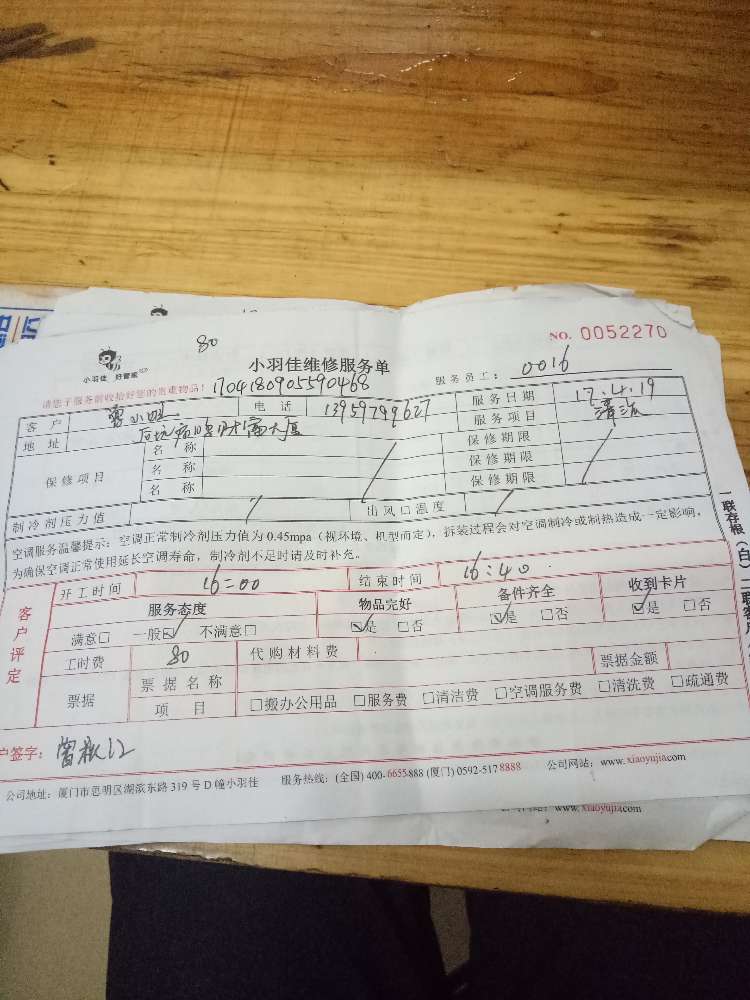 80
NO. 0052270
小羽佳 好管家
小羽佳维修服务单
服务员工: 0016
请您于服务前收拾好您的贵重物品!
1704180905590468
客户 曾小姐 电话 13959799627 服务日期 17.4.19
地址 后坑 大厦 服务项目 清洗
保修项目 名称 保修期限
名称 保修期限
名称 保修期限
制冷剂压力值 / 出风口温度 /
空调服务温馨提示: 空调正常制冷剂压力值为 0.45mpa (视环境、机型而定), 拆装过程会对空调制冷或制热造成一定影响,
为确保空调正常使用延长空调寿命, 制冷剂不足时请及时补充。
客户评定
开工时间 16:00 结束时间 16:40
服务态度 物品完好 备件齐全 收到卡片
满意□ 一般☑ 不满意□ ☑是 □否 ☑是 □否 ☑是 □否
工时费 80 代购材料费
票据 票据名称 票据金额
项目 □搬办公用品 □服务费 □清洁费 □空调服务费 □清洗费 □疏通费
户签字:
公司地址: 厦门市思明区湖滨东路 319 号 D 幢小羽佳 服务热线: (全国) 400-6655-888 (厦门) 0592-517 8888 公司网站: www.xiaoyujia.com
一联存根(白)
www.xiaoyujia.com